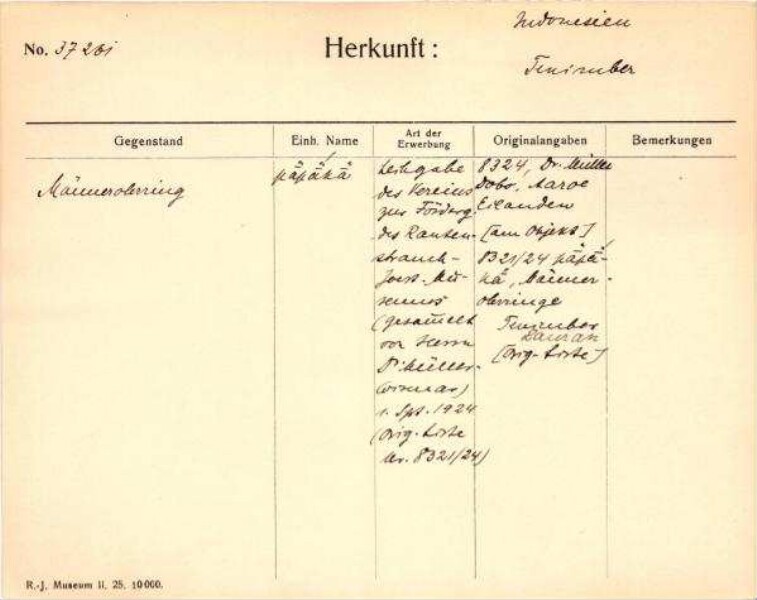 No. 37201
Herkunft :
Indonesien
Tenimber
Gegenstand
Einh. Name
Art der Erwerbung
Originalangaben
Bemerkungen
Männerohrring
päpäkä
Leihgabe
des Vereins
zur Förderg.
des Rauten-
strauch-
Joest-Mu-
seums
(gesammelt
von Herrn
Dr. Müller-
Wismar)
1. Spt. 1924
(Orig-Liste
Nr. 8321/24)
8324, Dr. Müller
Dobo, Aaroe
Eilanden
[am Objekt]
8321/24 päpä-
kä, Männer-
ohrringe
Tenimber
[Orig-Liste]
R.-J. Museum II. 25. 10000.